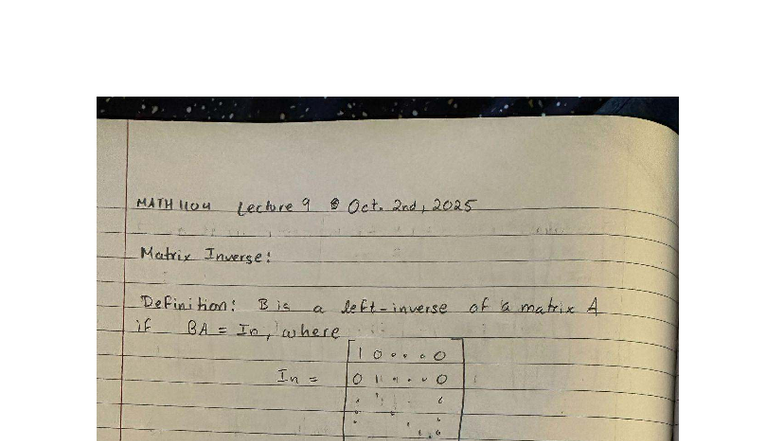 MATH 1104 Lecture 9 Oct. 2nd, 2025
Matrix Inverse:
Definition: B is a left-inverse of a matrix A
if BA = In, where
In = [1 0 . . . . 0
0 1 . . . . 0